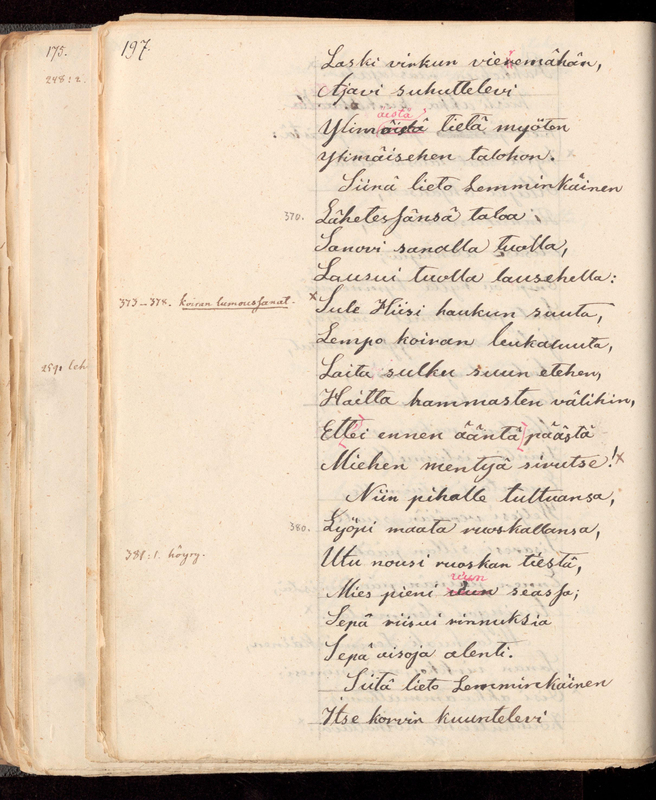 175.
248:2.
291. leh
197.
Laski virkun vieremähän,
Ajavi suhuttelevi
aistä
Ylimäistä tietä myöten
Ylimäisehen talohon.
Siinä lieto Lemminkäinen
370. Lähetessänsä taloa
Sanovi sanalla tuolla,
Lausui tuolla lausehella:
373–378. koiran lumoussanat. x Sule Hiisi haukun suuta,
Lempo koiran leukaluuta,
Laita sulku suun etehen,
Haitta hammasten välihin,
Ettei ennen ääntä päästä
Miehen mentyä sivutse! x
Niin pihalle tultuansa,
380. Lyöpi maata ruoskallansa,
381:1. höyry. Utu nousi ruoskan tiestä,
uun
Mies pieni seassa;
Sepä riisui rinnuksia
Sepä aisoja alenti.
Siitä lieto Lemminkäinen
Itse korvin kuuntelevi